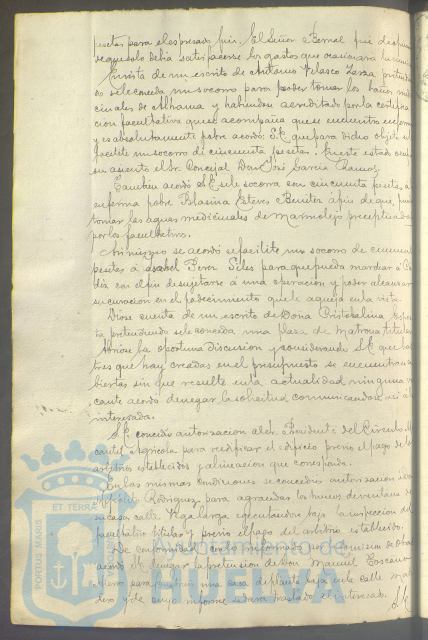 pesetas para el espresado fin. El Señor Bernal fué de
que solo debía satisfacerse los gastos que
En vista de un escrito de Antonio Velasco Zarza
se le conceda un socorro para poder tomar los baños
cinales de Alhama y habiendo acreditado por la certifica
cion facultativa que se acompaña que se encuentra enfermo
y es absolutamente pobre acordó S.E. que para dicho objeto se
facilite un socorro de cincuenta pesetas. En este estado
su asiento el Sr. Concejal Don José García Ramos.
Tambien acordó S.E. se le socorra con cincuenta pesetas a
enferma pobre Blasina Esteves Benitez á fin de que pueda
tomar las aguas medicinales de Marmolejo
por los facultativos.
Asi mismo se acordó se facilite un socorro de cincuenta
pesetas á Isabel Perez Seles para que pueda marchar á
diz con el fin de sujetarse á una operación y poder alcanzar
su curacion en el padecimiento que le aqueja en la vista.
Dióse cuenta de un escrito de Doña Cristobalina
ta pretendiendo se le conceda una plaza de Matrona titular
Abrióse la oportuna discusion y considerando S.E. que las
tres que hay creadas en el presupuesto se encuentran
biertas sin que resulte en la actualidad ninguna va
cante acordó denegar la solicitud comunicandose así al
interesada.
S.E. concedió autorizacion al Sr. Presidente del Circulo
cantil y Agrícola para reedificar el edificio previo el pago de los
arbitrios establecidos y alineacion que corresponda.
En las mismas condiciones se concedió autorizacion a
Rodriguez para agrandar los huecos de ventana de
su casa calle Vega larga ejecutandose bajo la inspeccion del
facultativo titular y previo el pago del arbitrio establecido.
De conformidad con lo informado por la Comision de Obras
acordó S.E. denegar la pretension de Don Manuel
para construir una casa de planta baja en la calle
dero y de cuyo informe se dará traslado al interesado.
S.E.
PORTUS MARIS ET TERRAE
Ayuntamiento de
HUELVA